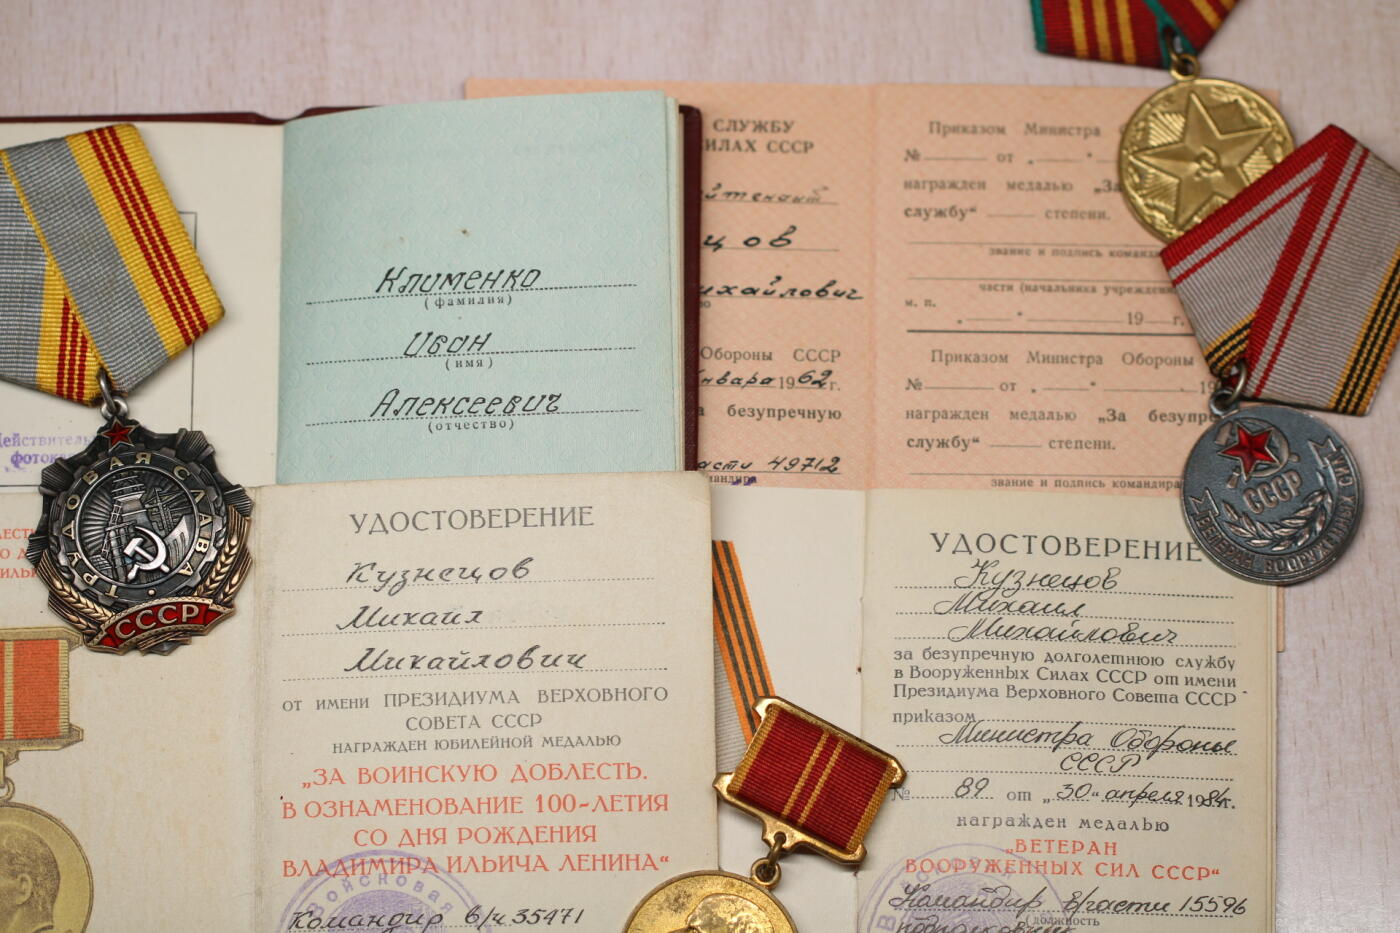 СЛУЖБУ
СИЛАХ СССР
йтенант
цов
ихайлович
Обороны СССР
января 1962 г.
а безупречную
части 49712
мандира
Приказом Министра
№ от „ “
награжден медалью „За
службу“ степени.
звание и подпись команди
части (начальника учрежден
м. п.
„ “ 19 г.
Приказом Министра Обороны
№ от „ “ 19
награжден медалью „За безупре
службу“ степени.
звание и подпись командира
Клименко
(фамилия)
Иван
(имя)
Алексеевич
(отчество)
Действитель
фотока
ТРУДОВАЯ СЛАВА
СССР
СССР
ВЕТЕРАН ВООРУЖЕННЫХ СИЛ
УДОСТОВЕРЕНИЕ
Кузнецов
Михаил
Михайлович
ОТ ИМЕНИ ПРЕЗИДИУМА ВЕРХОВНОГО
СОВЕТА СССР
НАГРАЖДЕН ЮБИЛЕЙНОЙ МЕДАЛЬЮ
„ЗА ВОИНСКУЮ ДОБЛЕСТЬ.
В ОЗНАМЕНОВАНИЕ 100-ЛЕТИЯ
СО ДНЯ РОЖДЕНИЯ
ВЛАДИМИРА ИЛЬИЧА ЛЕНИНА“
Войсковая
Командир в/ч 35471
УДОСТОВЕРЕНИЕ
Кузнецов
Михаил
Михайлович
за безупречную долголетнюю службу
в Вооруженных Силах СССР от имени
Президиума Верховного Совета СССР
приказом
Министра Обороны
СССР
№ 89 от „30“ апреля 1984г.
награжден медалью
„ВЕТЕРАН
ВООРУЖЕННЫХ СИЛ СССР“
Командир в/части 15596
(должность
подполковник